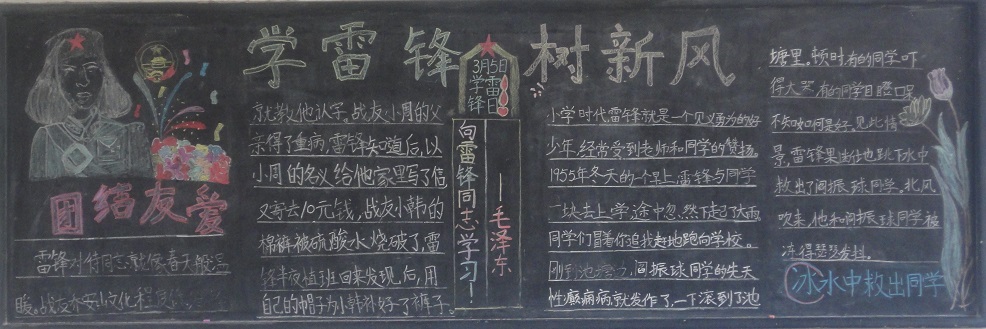 学雷锋 树新风
3月5日
学雷
锋日
团结友爱
雷锋对待同志就像春天般温
暖。战友乔安山文化程度低，
就教他认字。战友小周的父
亲得了重病，雷锋知道后，以
小周的名义给他家里写了信
又寄去10元钱，战友小韩的
棉裤被硫酸水烧破了，雷
锋半夜值班回来发现后，用
自己的帽子为小韩补好了裤子。
向雷锋同志学习！
——毛泽东
小学时代雷锋就是一个见义勇为的好
少年，经常受到老师和同学的赞扬。
1955年冬天的一个早上，雷锋与同学
一块去上学，途中忽然下起了大雨
同学们冒着你追我赶地跑向学校。
刚到池，阎振球同学的先天
性癫痫病就发作了，一下滚到了池
塘里。顿时有的同学吓
得大哭，有的同学目瞪口呆
不知如何是好。见此情
景，雷锋果也跳下水中
救出了阎振球同学。北风
吹来，他和阎振球同学被
冻得瑟瑟发抖。
冰水中救出同学